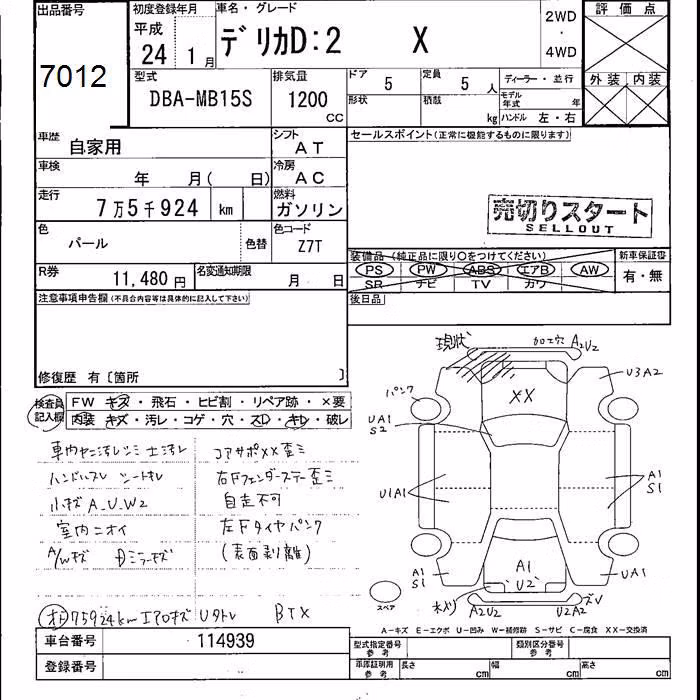 出品番号
7012
初度登録年月
平成
24 1月
車名・グレード
デリカD:2 X
2WD
・
4WD
評価点
外装 内装
型式
DBA-MB15S
排気量
1200
CC
ドア
5
定員
5 人
形状
積載
kg
ディーラー・並行
モデル年式 年
ハンドル 左・右
車歴
自家用
シフト
AT
車検
年 月( 日)
冷房
AC
走行
7万5千924 km
燃料
ガソリン
色
パール
色替
色コード
Z7T
R券
11,480円
名変通知期限
月 日
セールスポイント(正常に機能するものに限ります)
売切りスタート
SELLOUT
装備品(純正品に限り○をつけてください)
PS PW ABS エアB AW
SR ナビ TV カワ
新車保証書
有・無
後日品
注意事項申告欄(不具合内容等は具体的に記入して下さい)
修復歴 有〔箇所 〕
検査員記入欄
FW キズ・飛石・ヒビ割・リペア跡・×要
内装 キズ・汚レ・コゲ・穴・スレ・キレ・破レ
車内ヤニ汚レシミ土汚レ
ハンドルスレ シートすれ
小キズA.U.W2
室内ニオイ
A/Wキズ Dミラーキズ
コアサポXX歪ミ
右Fフェンダーステー歪ミ
自走不可
左Fタイヤパンク
(表面剥離)
75924km エアロキズ Uタトレ BTX
現状
加工穴 A2U2
XX
U3A2
パンク
UA1
S2
U1A1
A1
S1
A1
S1
A1
U2
UA1
スペア
キズ
A2U2
U2A2
ズレ
A-キズ E-エクボ U-凹み W-補修跡 S-サビ C-腐食 XX-交換済
車台番号
114939
登録番号
型式指定番号
参考
類別区分番号
参考
車庫証明用
参考
長さ cm
幅 cm
高さ cm